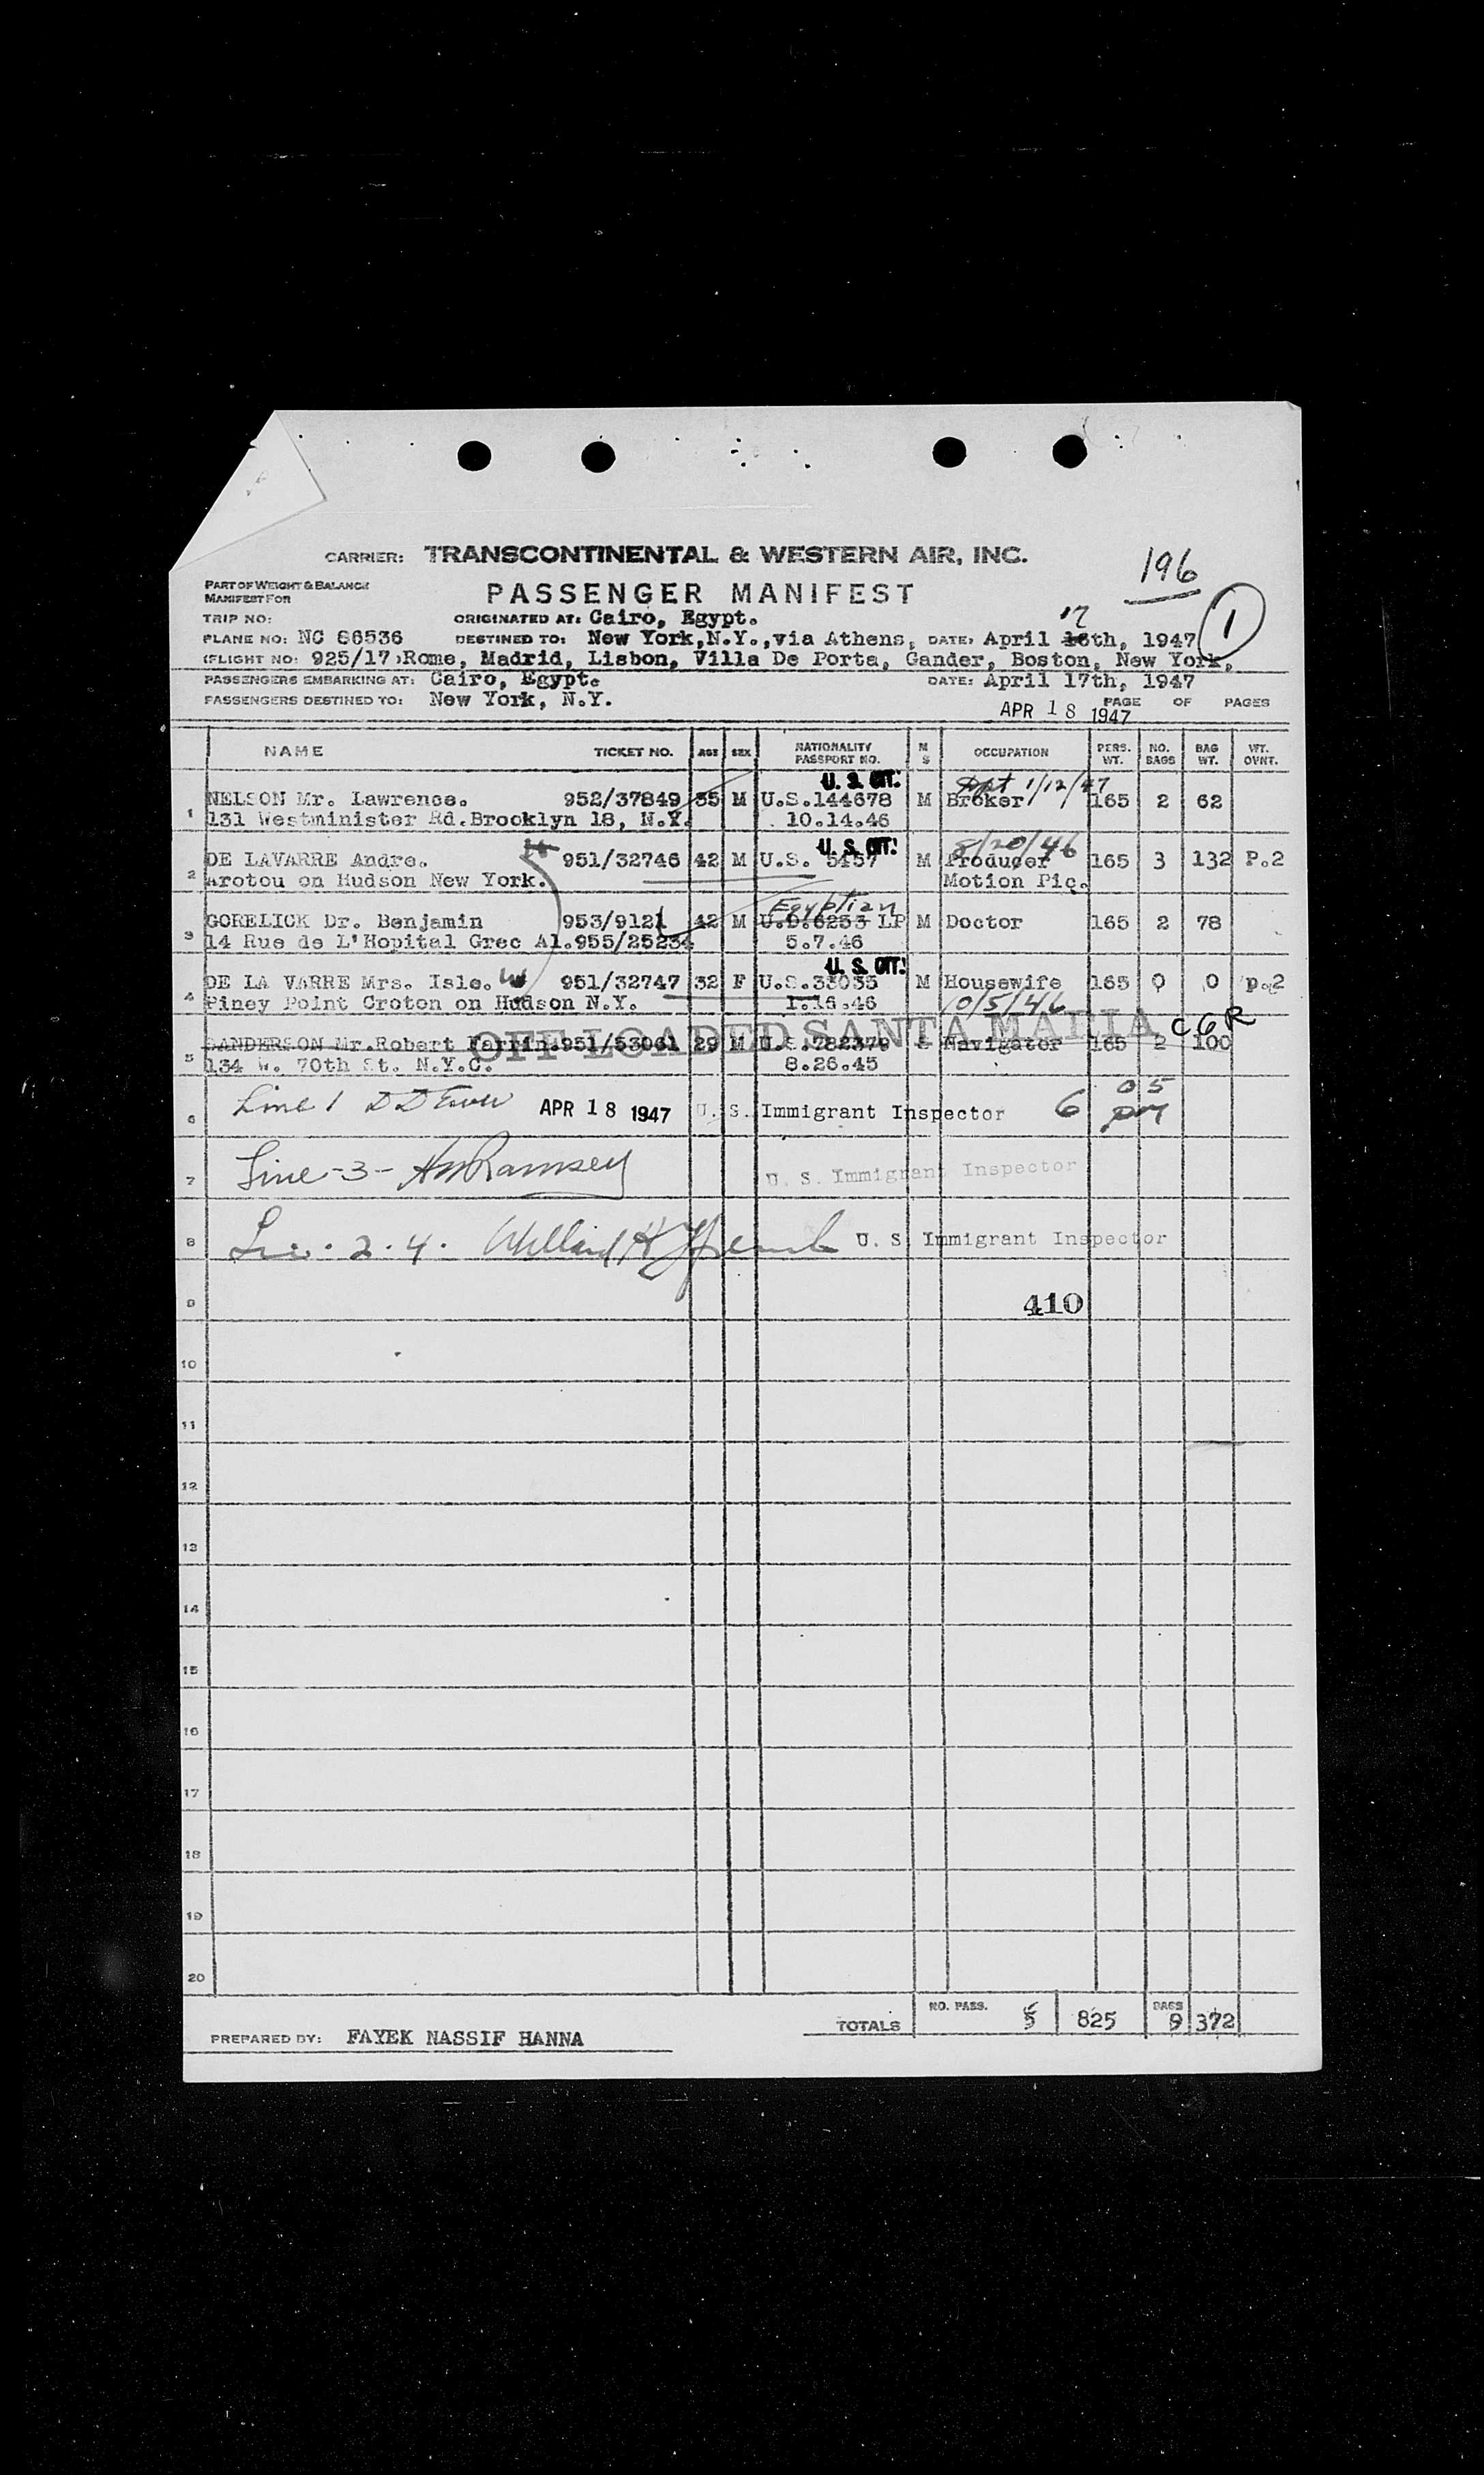 196
CARRIER: TRANSCONTINENTAL & WESTERN AIR, INC.
PART OF WEIGHT & BALANCE
MANIFEST FOR
PASSENGER MANIFEST
1
TRIP NO: ORIGINATED AT: Cairo, Egypt. 17
PLANE NO: NC 86536 DESTINED TO: New York,N.Y.,via Athens, DATE: April 16th, 1947
(FLIGHT NO: 925/17) Rome, Madrid, Lisbon, Villa De Porta, Gander, Boston, New York,
PASSENGERS EMBARKING AT: Cairo, Egypt. DATE: April 17th, 1947
PASSENGERS DESTINED TO: New York, N.Y. PAGE OF PAGES
APR 18 1947
NAME TICKET NO. AGE SEX NATIONALITY PASSPORT NO. M S OCCUPATION PERS. WT. NO. BAGS BAG WT. WT. OVNT.
U. S. CIT. Dpt 1/12/47
1 NELSON Mr. Lawrence. 952/37849 35 M U.S.144678 M Broker 165 2 62
131 Westminister Rd.Brooklyn 18, N.Y. 10.14.46
U. S. CIT. 8/20/46
2 DE LAVARRE Andre. 951/32746 42 M U.S. 5457 M Producer 165 3 132 P.2
Arotou on Hudson New York. Motion Pic.
Egyptian
3 GORELICK Dr. Benjamin 953/9121 42 M U.S.6253 LP M Doctor 165 2 78
14 Rue de L'Hopital Grec Al.955/25234 5.7.46
U. S. CIT.
4 DE LA VARRE Mrs. Isle. W 951/32747 32 F U.S.33035 M Housewife 165 0 0 p.2
Piney Point Croton on Hudson N.Y. 1.16.46 10/5/46
OFF LOADED SANTA MARIA CGR
5 SANDERSON Mr.Robert Farrin.951/53061 29 M U.S.782379 Navigator 165 2 100
134 W. 70th St. N.Y.C. 8.26.45
6 Line 1 APR 18 1947 U. S. Immigrant Inspector 6 05 pm
7 Line-3- Ramsey U. S. Immigrant Inspector
8 2.4. Willard U. S. Immigrant Inspector
9 410
10
11
12
13
14
15
16
17
18
19
20
PREPARED BY: FAYEK NASSIF HANNA TOTALS NO. PASS. 5 825 BAGS 9 372